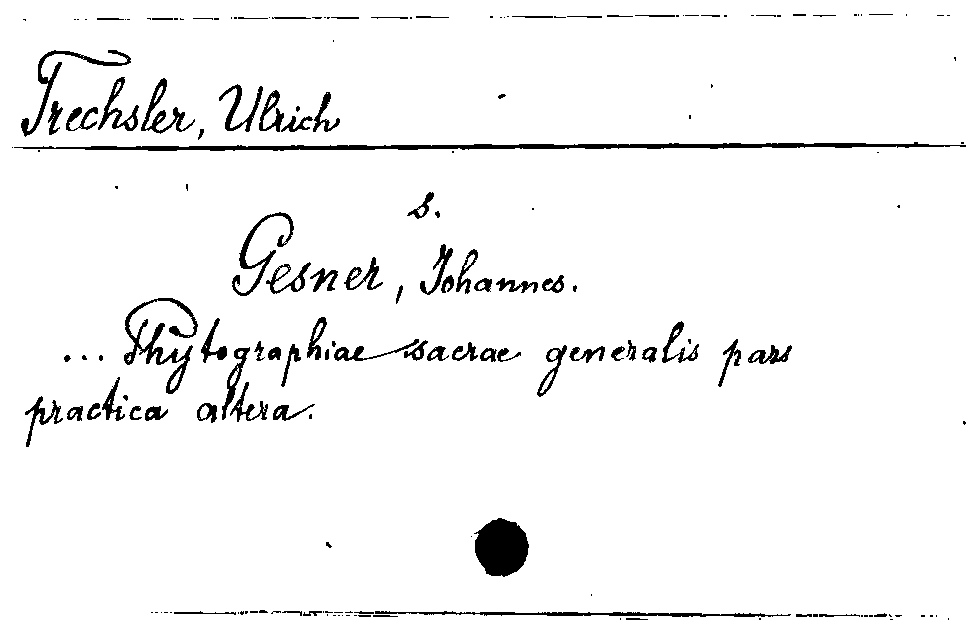 Trechsler, Ulrich
s.
Gesner, Johannes.
... Phytographiae sacrae generalis pars
practica altera.